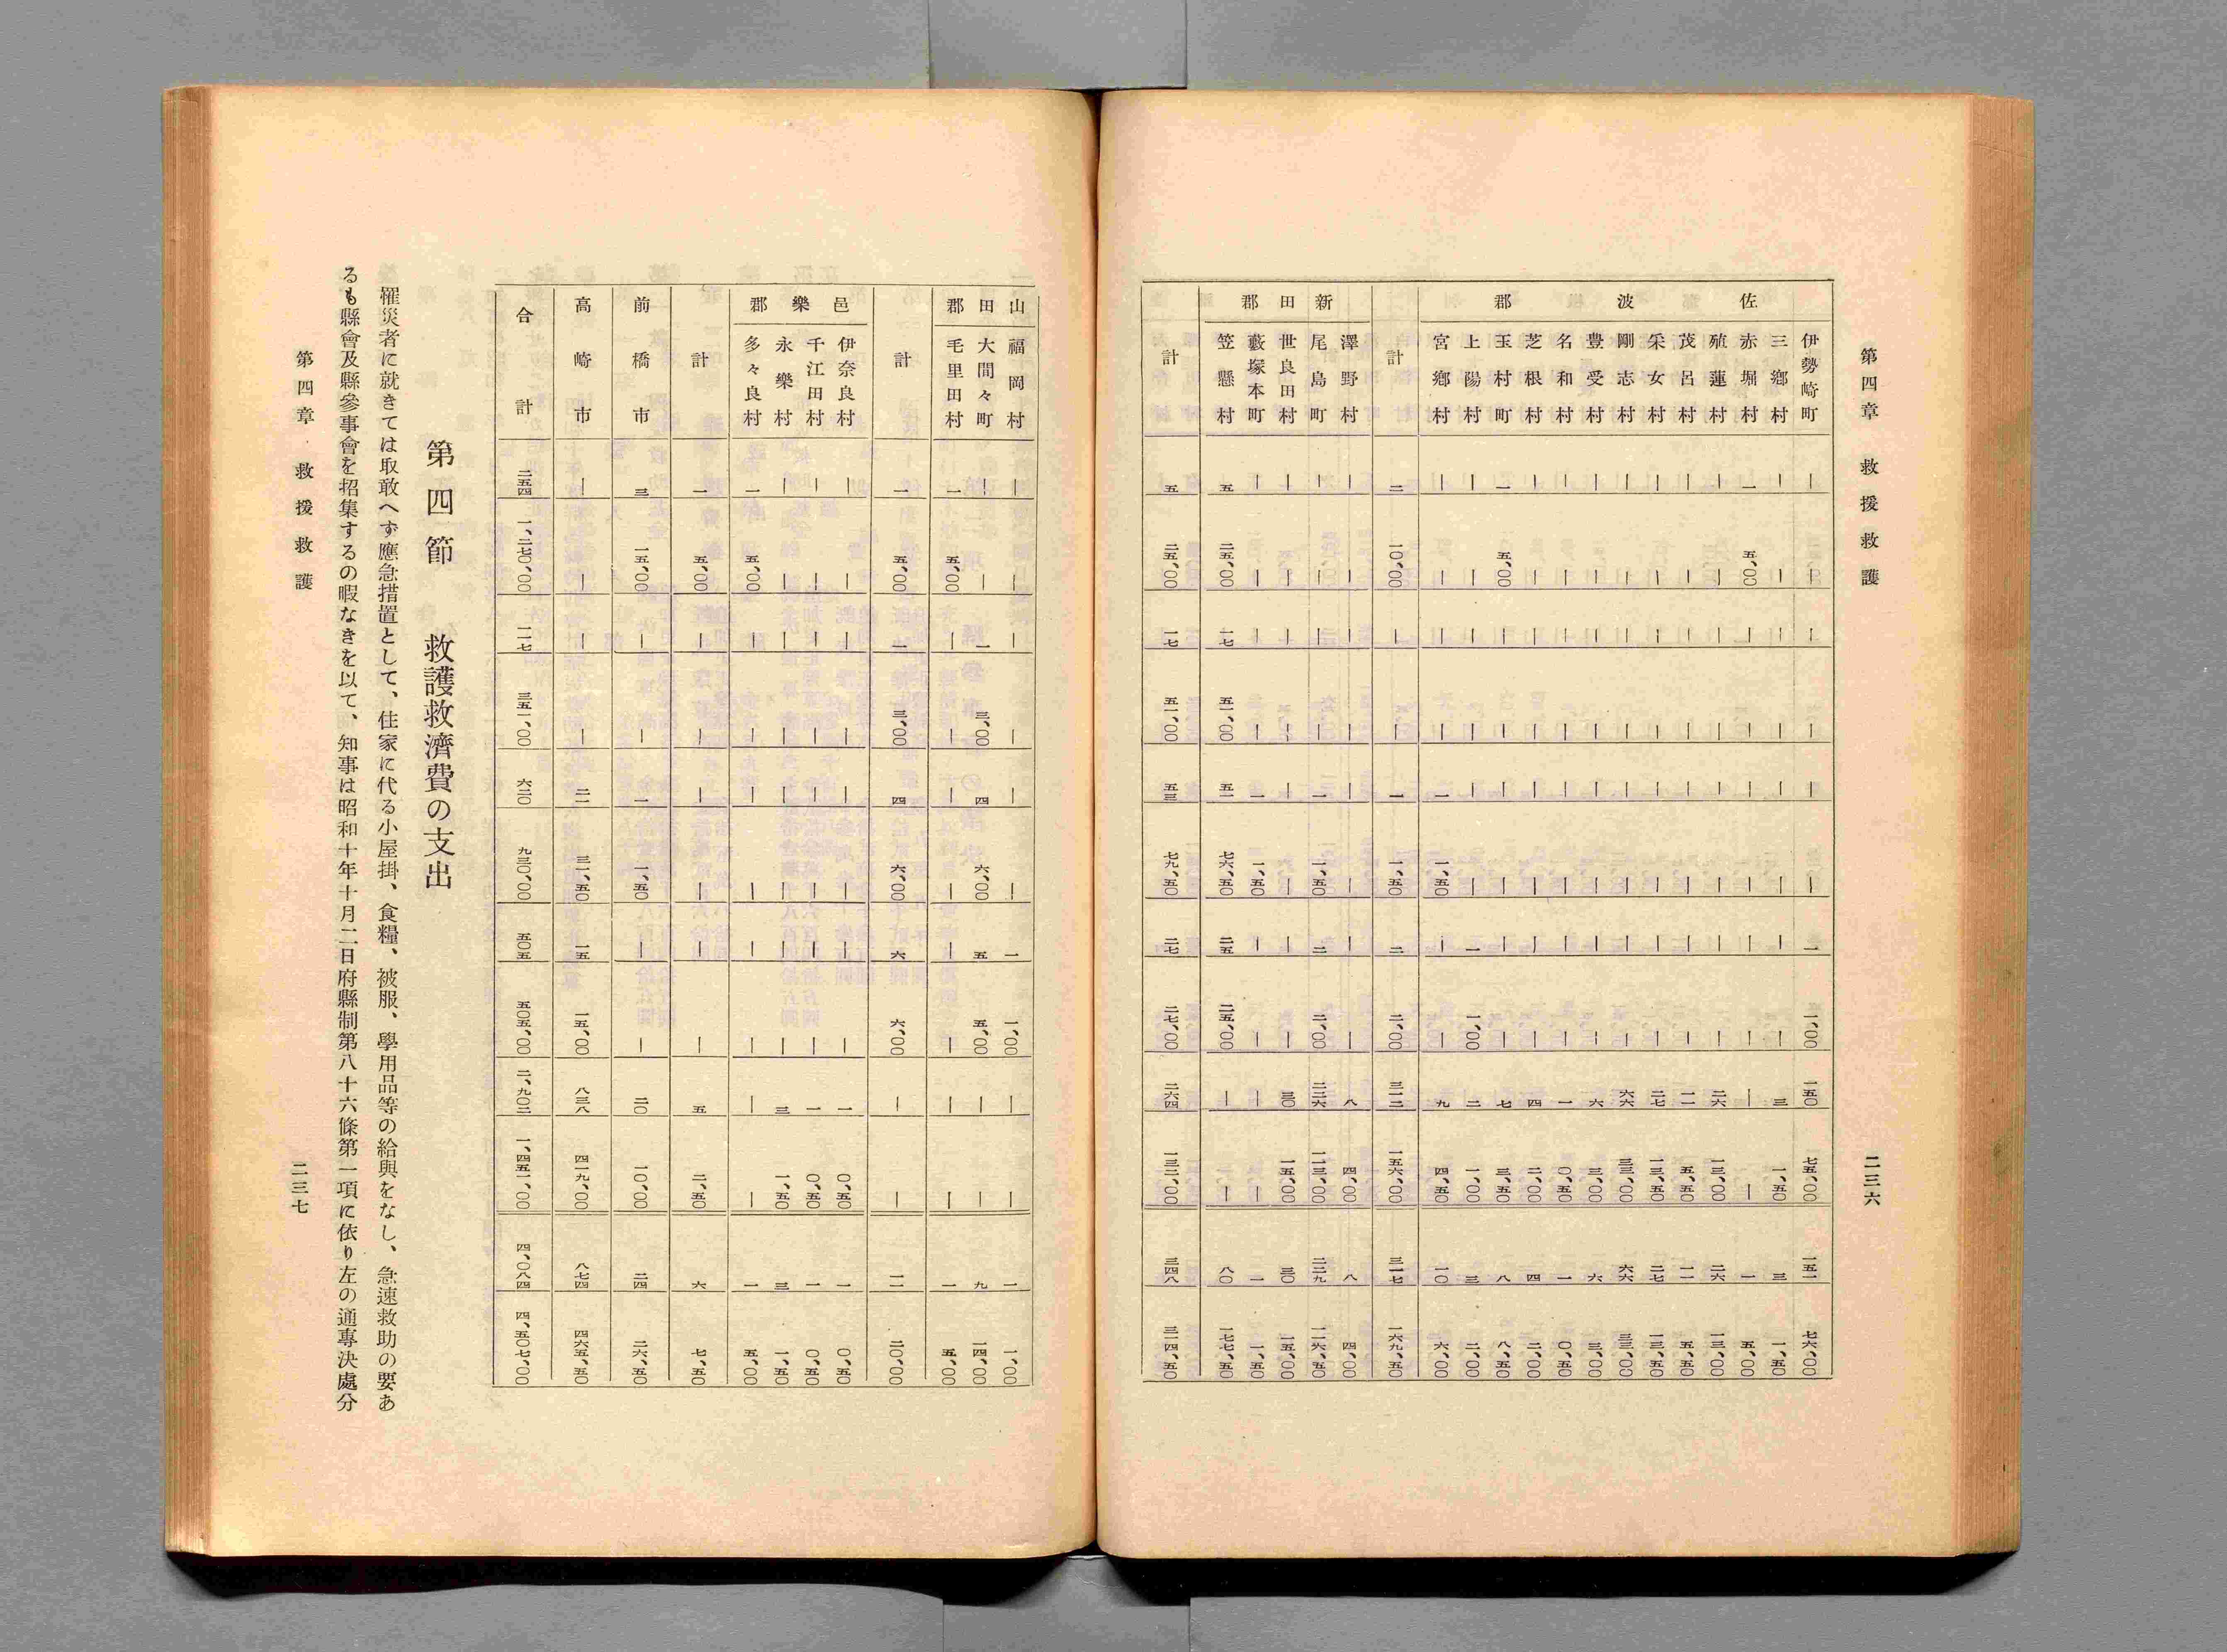 第四章　救援救護
二三六
佐波郡
伊勢崎町　｜　｜　｜　｜　｜　｜　一　一、〇〇　一五〇　七五、〇〇　一五一　七六、〇〇
三郷村　｜　｜　｜　｜　｜　｜　｜　｜　三　一、五〇　三　一、五〇
赤堀村　一　五、〇〇　｜　｜　｜　｜　｜　｜　｜　｜　一　五、〇〇
殖蓮村　｜　｜　｜　｜　｜　｜　｜　｜　二六　一三、〇〇　二六　一三、〇〇
茂呂村　｜　｜　｜　｜　｜　｜　｜　｜　一一　五、五〇　一一　五、五〇
采女村　｜　｜　｜　｜　｜　｜　｜　｜　二七　一三、五〇　二七　一三、五〇
剛志村　｜　｜　｜　｜　｜　｜　｜　｜　六六　三三、〇〇　六六　三三、〇〇
豊受村　｜　｜　｜　｜　｜　｜　｜　｜　六　三、〇〇　六　三、〇〇
名和村　｜　｜　｜　｜　｜　｜　｜　｜　一　〇、五〇　一　〇、五〇
芝根村　｜　｜　｜　｜　｜　｜　｜　｜　四　二、〇〇　四　二、〇〇
玉村町　一　五、〇〇　｜　｜　｜　｜　｜　｜　七　三、五〇　八　八、五〇
上陽村　｜　｜　｜　｜　｜　｜　一　一、〇〇　二　一、〇〇　三　二、〇〇
宮郷村　｜　｜　｜　｜　一　一、五〇　｜　｜　九　四、五〇　一〇　六、〇〇
計　二　一〇、〇〇　｜　｜　一　一、五〇　二　二、〇〇　三一二　一五六、〇〇　三一七　一六九、五〇
新田郡
澤野村　｜　｜　｜　｜　｜　｜　｜　｜　八　四、〇〇　八　四、〇〇
尾島町　｜　｜　｜　｜　一　一、五〇　二　二、〇〇　二二六　一一三、〇〇　二二九　一一六、五〇
世良田村　｜　｜　｜　｜　｜　｜　｜　｜　三〇　一五、〇〇　三〇　一五、〇〇
藪塚本町　｜　｜　｜　｜　一　一、五〇　｜　｜　｜　｜　一　一、五〇
笠懸村　五　二五、〇〇　一七　五一、〇〇　五一　七六、五〇　二五　二五、〇〇　｜　｜　八〇　一七七、五〇
計　五　二五、〇〇　一七　五一、〇〇　五三　七九、五〇　二七　二七、〇〇　二六四　一三二、〇〇　三四八　三一四、五〇
山田郡
福岡村　｜　｜　｜　｜　｜　｜　一　一、〇〇　｜　｜　一　一、〇〇
大間々町　｜　｜　一　三、〇〇　四　六、〇〇　五　五、〇〇　｜　｜　九　一四、〇〇
毛里田村　一　五、〇〇　｜　｜　｜　｜　｜　｜　｜　｜　一　五、〇〇
計　一　五、〇〇　一　三、〇〇　四　六、〇〇　六　六、〇〇　｜　｜　一一　二〇、〇〇
邑樂郡
伊奈良村　｜　｜　｜　｜　｜　｜　｜　｜　一　〇、五〇　一　〇、五〇
千江田村　｜　｜　｜　｜　｜　｜　｜　｜　一　〇、五〇　一　〇、五〇
永樂村　｜　｜　｜　｜　｜　｜　｜　｜　三　一、五〇　三　一、五〇
多々良村　一　五、〇〇　｜　｜　｜　｜　｜　｜　｜　｜　一　五、〇〇
計　一　五、〇〇　｜　｜　｜　｜　｜　｜　五　二、五〇　六　七、五〇
前橋市　三　一五、〇〇　｜　｜　一　一、五〇　｜　｜　二〇　一〇、〇〇　二四　二六、五〇
高崎市　｜　｜　｜　｜　二一　三一、五〇　一五　一五、〇〇　八三八　四一九、〇〇　八七四　四六五、五〇
合計　二五四　一、二七〇、〇〇　一一七　三五一、〇〇　六二〇　九三〇、〇〇　五〇五　五〇五、〇〇　二、九〇二　一、四五一、〇〇　四、〇〇八四　四、五〇七、〇〇
第四節　救護救濟費の支出
罹災者に就きては取敢へず應急措置として、住家に代る小屋掛、食糧、被服、學用品等の給與をなし、急速救助の要あ
るも縣會及縣參事會を招集するの暇なきを以て、知事は昭和十年十月二日府縣制第八十六條第一項に依り左の通專決處分
第四章　救援救護
二三七